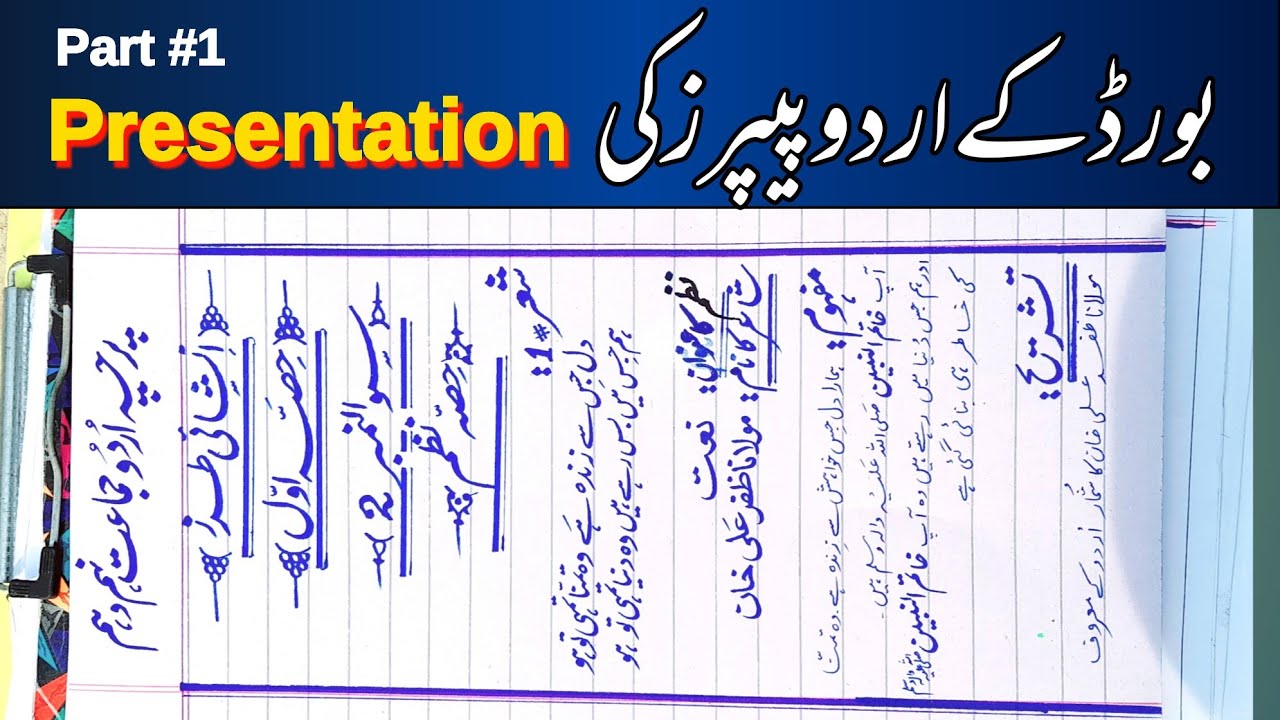 Part #1
بورڈ کے اردو پیپرز کی Presentation
پرچہ اردو جماعت نہم دہم
﴿اِنشائی طرز﴾
﴿حِصّہ اوّل﴾
﴿سوالنمبر 2﴾
حِصّہ نظم
شعر #1:
دل جس سے زندہ ہے وہ تمنّا تمہی تو ہو
ہم جس میں بس رہے ہیں وہ دنیا تمہی تو ہو
نظم کا عنوان: نعت
شاعر کا نام: مولانا ظفر علی خان
مفہوم: ہمارا دل جس خواہش سے زندہ ہے۔ وہ تمنّا
آپ خاتم النبیین صلی اللہ علیہ والہ وسلم ہیں۔
اور ہم جس دُنیا میں رہتے ہیں وہ آپ خاتم النبیین صلی اللہ علیہ والہ وسلم
کی خاطر ہی بنائی گئی ہے
تشریح:
مولانا ظفر علی خان کا شُمار اُردو کے معروف